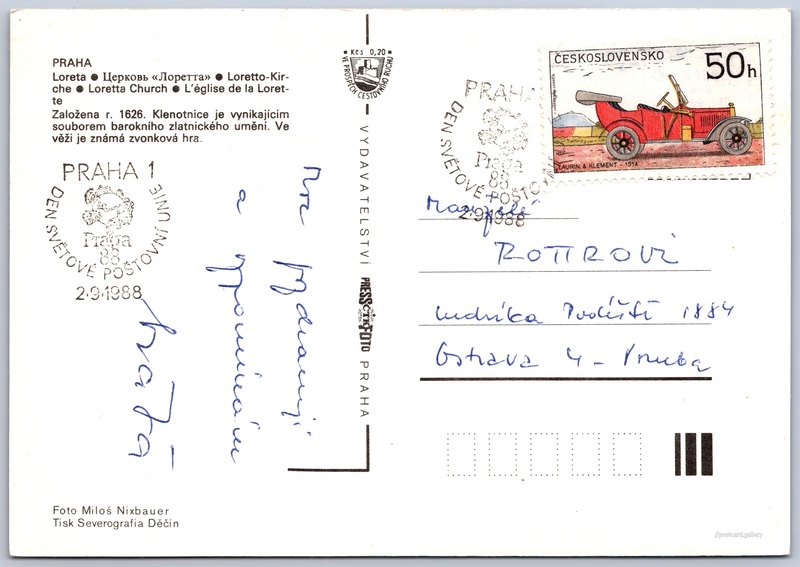 PRAHA
Loreta ● Церковь «Лоретта» ● Loretto-Kir-
che ● Loretta Church ● L'église de la Loret-
te
Založena r. 1626. Klenotnice je vynikajícím
souborem barokního zlatnického umění. Ve
věži je známá zvonková hra.
PRAHA 1
DEN SVĚTOVÉ POŠTOVNÍ UNIE
Praga
88
2.9.1988
a
Foto Miloš Nixbauer
Tisk Severografia Děčín
Kčs 0,20
VE PROSPĚCH CESTOVNÍHO RUCHU
VYDAVATELSTVÍ PRESSFOTO PRAHA
ČTK
ČESKOSLOVENSKO
50h
LAURIN & KLEMENT - 1914
PRAHA
DEN SVĚTOVÉ POŠTOVNÍ
Praga
88
2.9.1988
Manželé
ROTTROVI
Ludvíka Podéště 1884
Ostrava 4 - Poruba
//postcard.gallery